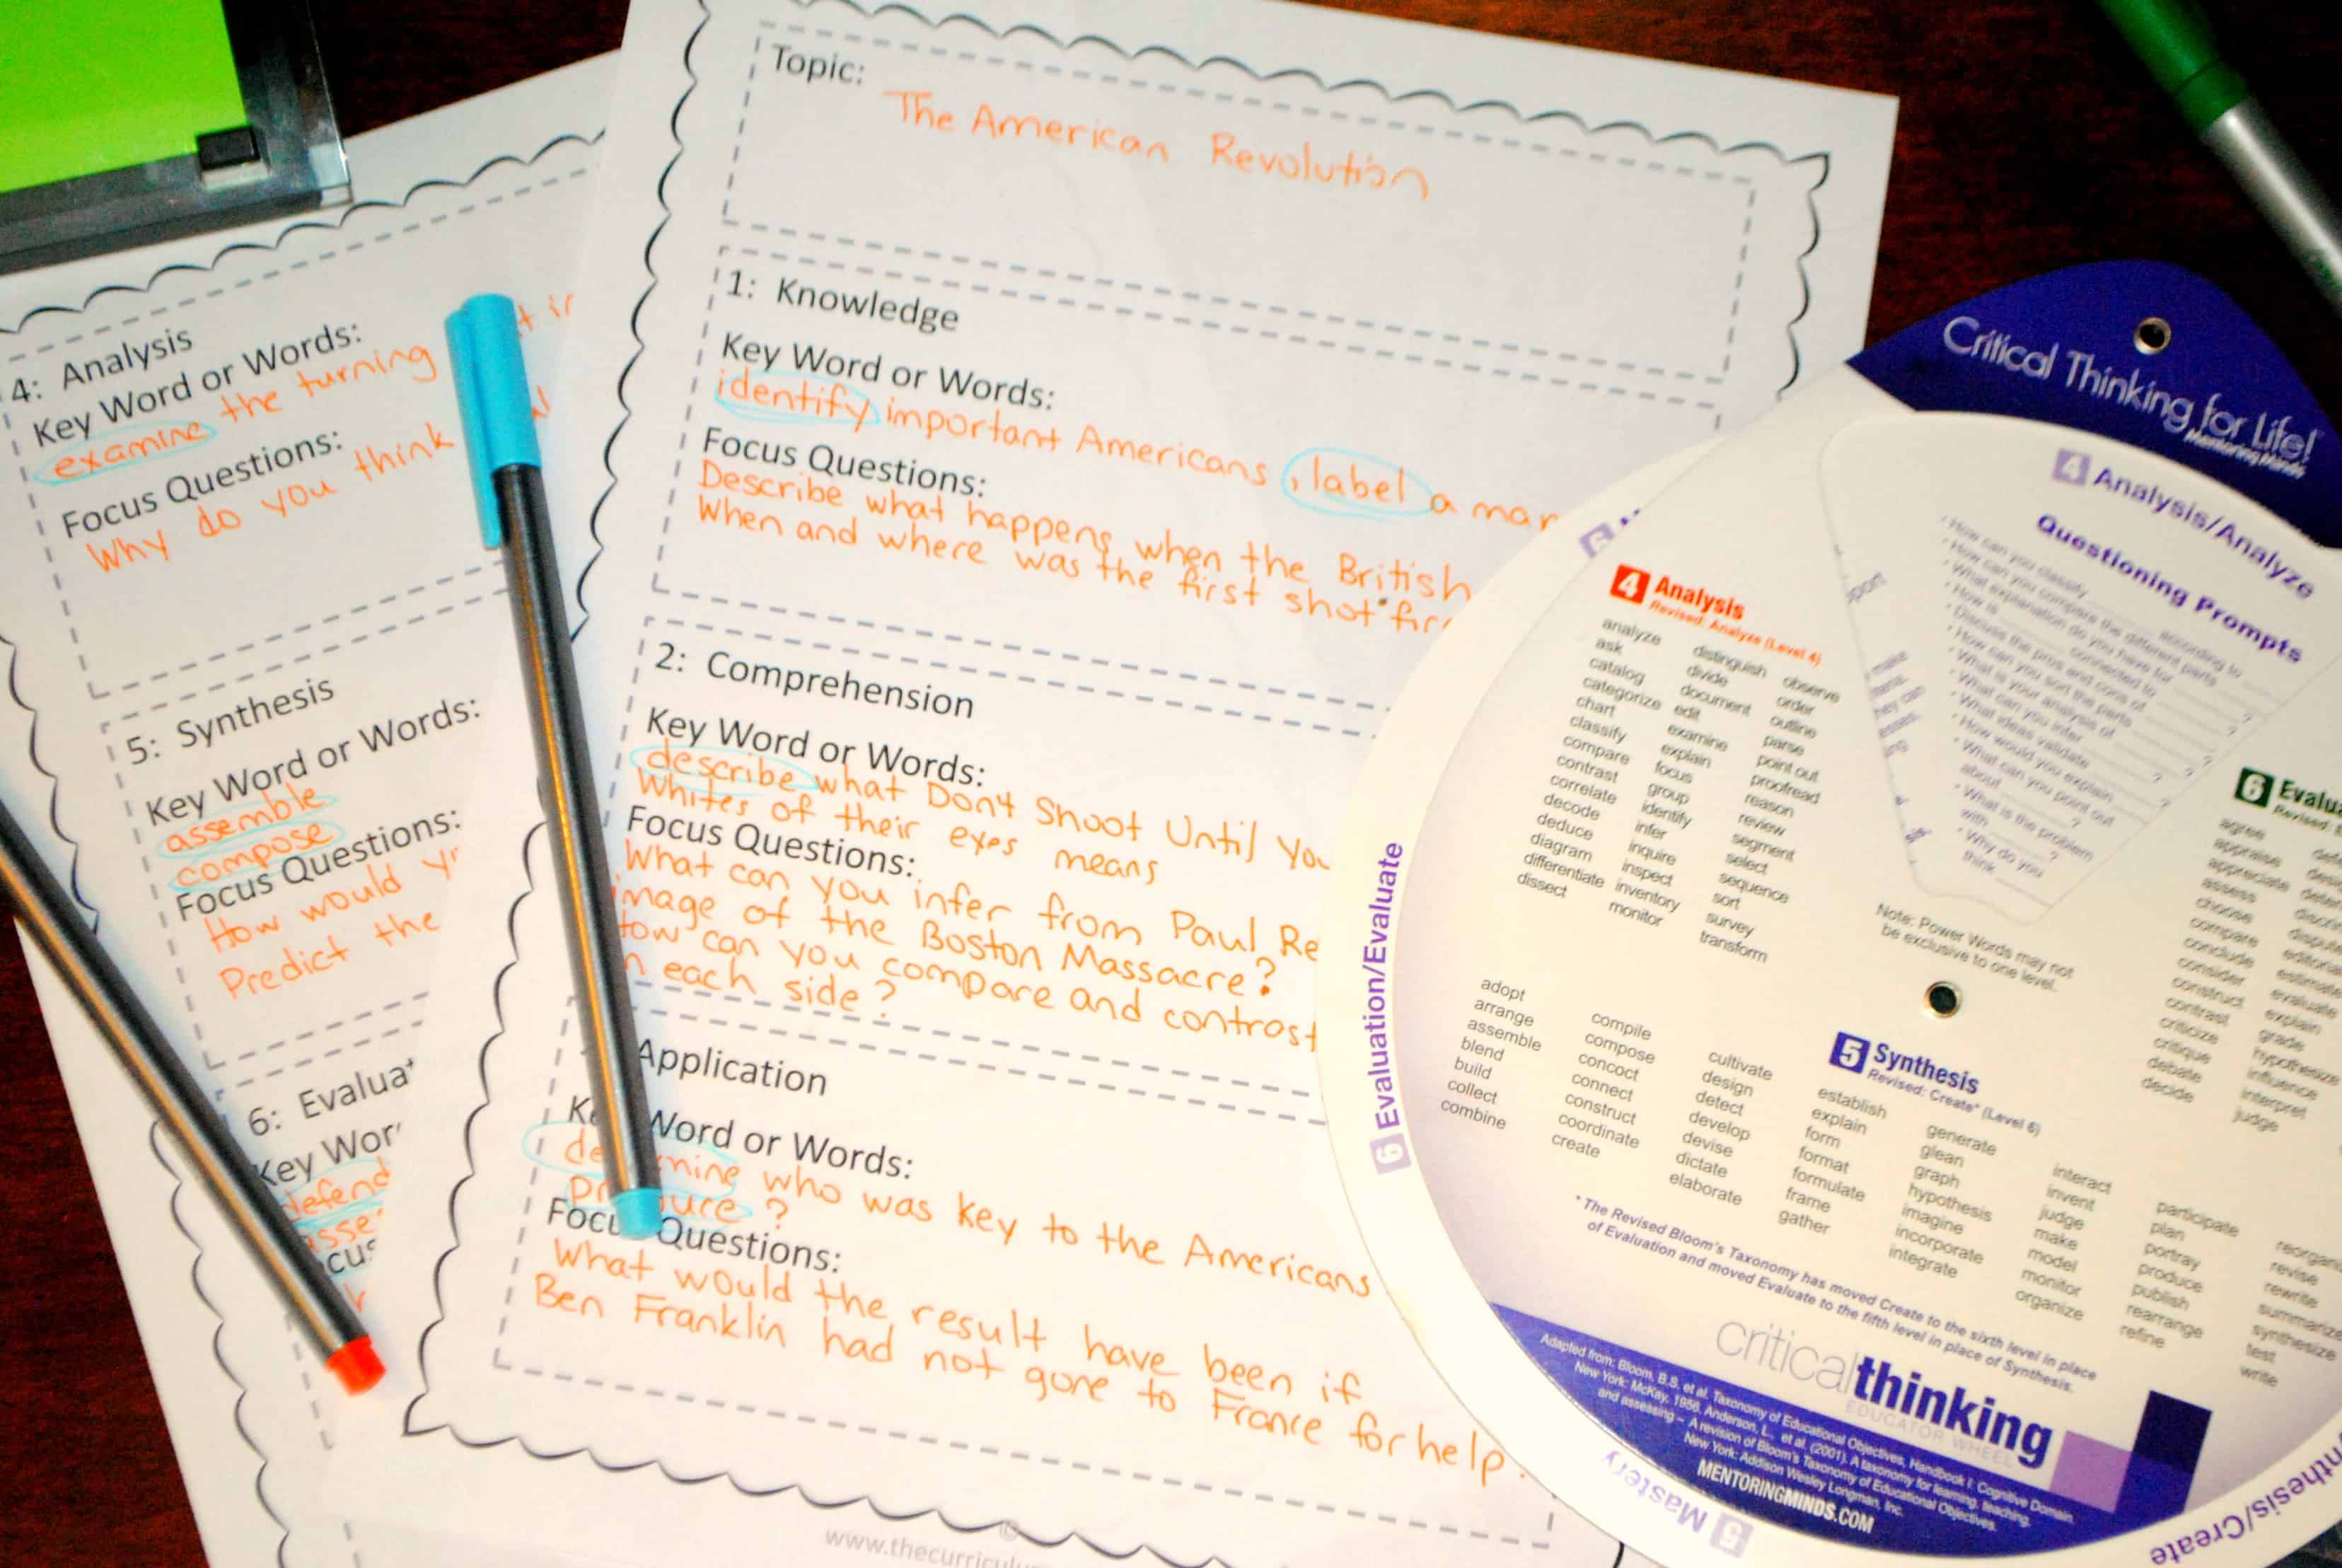 Topic:
The American Revolution
1: Knowledge
Key Word or Words:
identify important Americans, label a map
Focus Questions:
Describe what happens when the British
When and where was the first shot
2: Comprehension
Key Word or Words:
describe what Don't Shoot Until You
Whites of their eyes means
Focus Questions:
What can you infer from Paul Re
image of the Boston Massacre?
How can you compare and contrast
each side?
Application
Word or Words:
who was key to the Americans
?
Questions:
What would the result have been if
Ben Franklin had not gone to France for help
www.thecurricul
4: Analysis
Key Word or Words:
examine the turning
Focus Questions:
Why do you think
5: Synthesis
Key Word or Words:
assemble
compose
Focus Questions:
How would
Predict the
6: Evaluat
Key Wor
defend
Critical Thinking for Life!
Mentoring Minds
4 Analysis/Analyze
Questioning Prompts
• How can you classify according to
• How can you compare the different parts
• What explanation do you have for
• How is connected to
• Discuss the pros and cons of
• How can you sort the parts
• What is your analysis of ?
• What can you infer ?
• What ideas validate ?
• How would you explain ?
• What can you point out
about ?
• What is the problem
with ?
• Why do you
think
4 Analysis
Revised: Analyze (Level 4)
analyze
ask
catalog
categorize
chart
classify
compare
contrast
correlate
decode
deduce
diagram
differentiate
dissect
distinguish
divide
document
edit
examine
explain
focus
group
identify
infer
inquire
inspect
inventory
monitor
observe
order
outline
parse
point out
proofread
reason
review
segment
select
sequence
sort
survey
transform
Note: Power Words may not
be exclusive to one level.
6 Evalu
Revised:
agree
appraise
appreciate
assess
choose
compare
conclude
consider
construct
contrast
criticize
critique
debate
decide
editorial
estimate
evaluate
explain
grade
hypothesize
influence
interpret
judge
6 Evaluation/Evaluate
5 Synthesis
Revised: Create* (Level 6)
adopt
arrange
assemble
blend
build
collect
combine
compile
compose
concoct
connect
construct
coordinate
create
cultivate
design
detect
develop
devise
dictate
elaborate
establish
explain
form
format
formulate
frame
gather
generate
glean
graph
hypothesis
imagine
incorporate
integrate
interact
invent
judge
make
model
monitor
organize
participate
plan
portray
produce
publish
rearrange
refine
reorgani
revise
rewrite
summarize
synthesize
test
write
* The Revised Bloom's Taxonomy has moved Create to the sixth level in place
of Evaluation and moved Evaluate to the fifth level in place of Synthesis.
criticalthinking
EDUCATOR WHEEL
Adapted from: Bloom, B.S. et al. Taxonomy of Educational Objectives, Handbook I: Cognitive Domain.
New York: McKay, 1956. Anderson, L., et al. (2001). A taxonomy for learning, teaching,
and assessing – A revision of Bloom's Taxonomy of Educational Objectives.
New York: Addison Wesley Longman, Inc.
MENTORINGMINDS.COM
5 Mastery
nthesis/Create